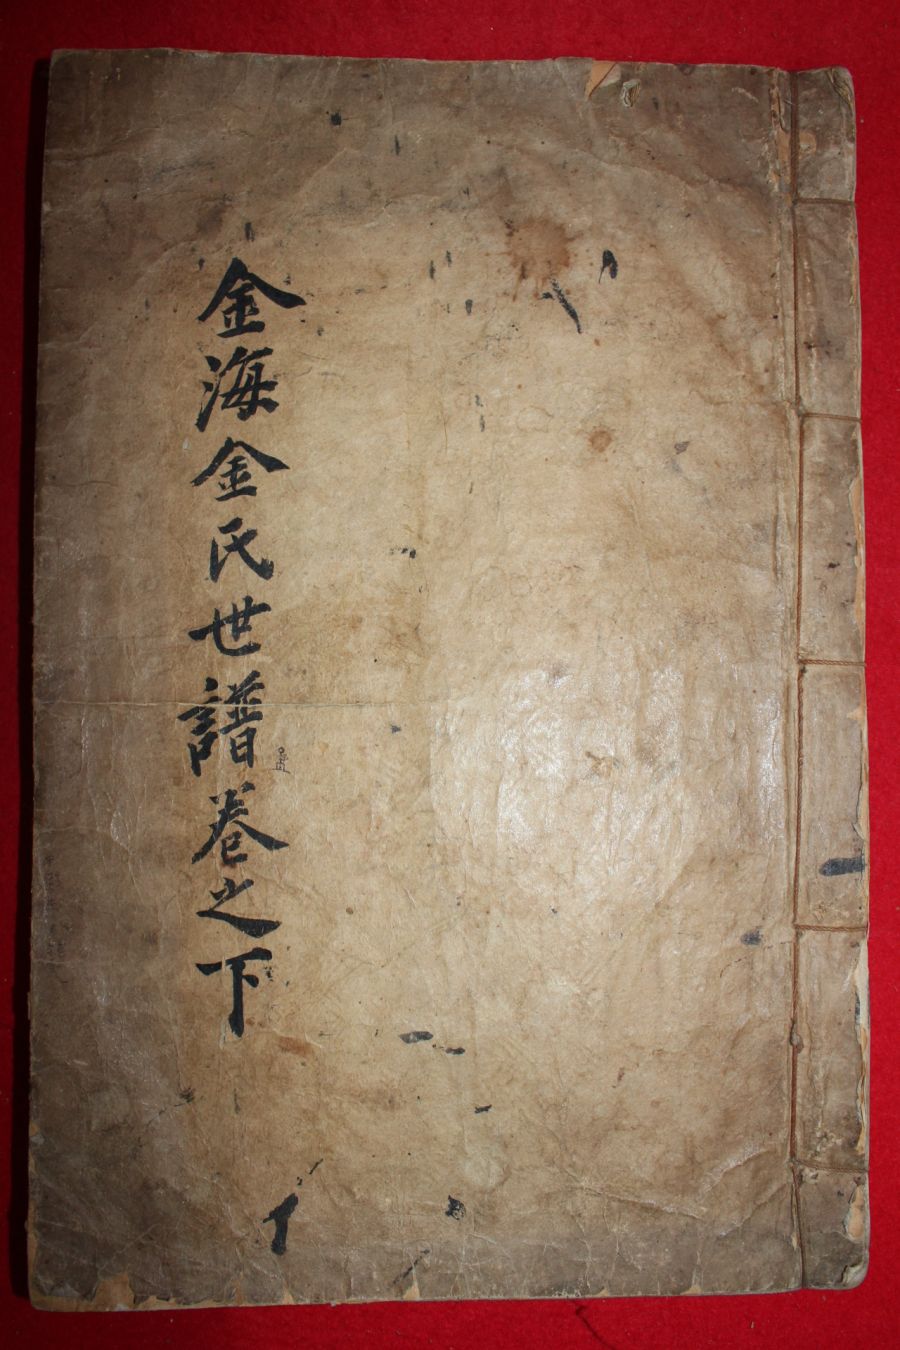 金海金氏世譜卷之下